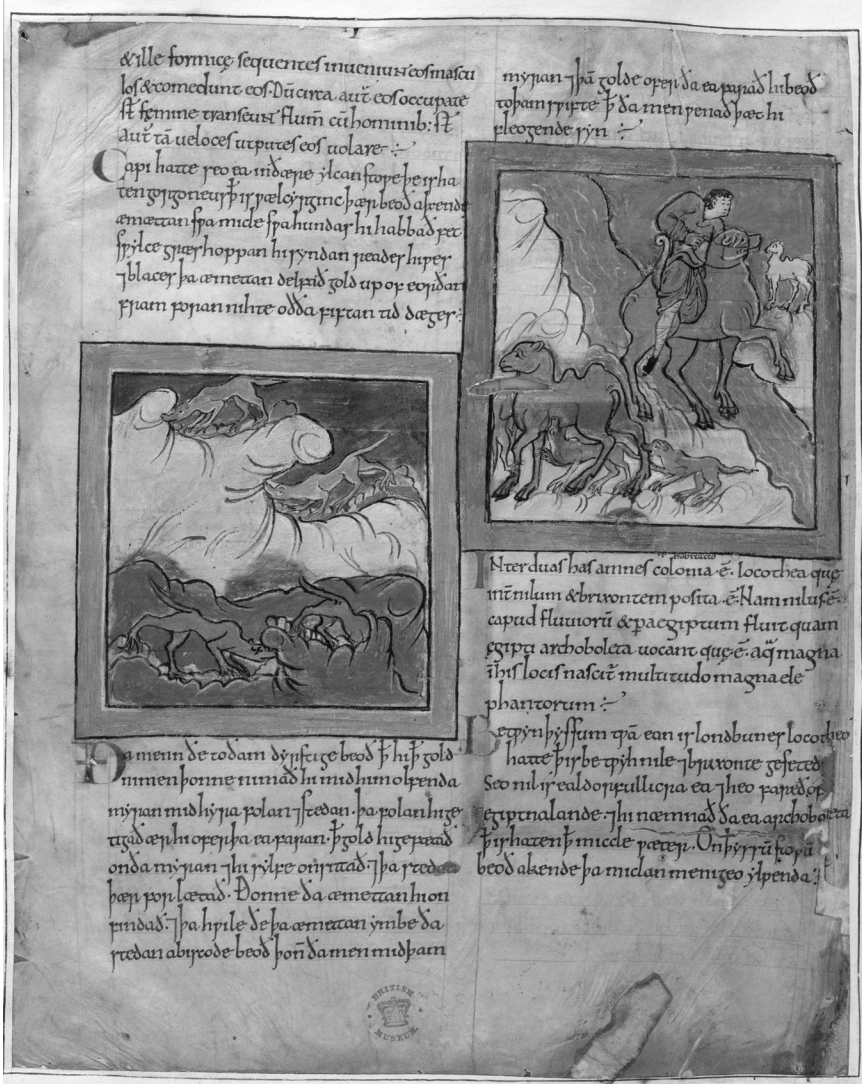 &ille formicę sequentes inueniunt eos mascu
los & comedunt eos. Dū circa aut̄ eos occupate
st̄ femine transeunt flum̄ cū hominib: st̄
aut̄ tā ueloces ut putes eos uolare÷
Capi hatte seo ea in ðære ylcan stowe þe is ha
ten gorgoneus ꝥ is wælcyrginc. þær beoð akende
æmættan swa micle swa hundas hi habbað fet
swylce græshoppan hi syndan reades hiwes
⁊ blaces þa æmettan delfað gold up of eorðan
fram foran nihte oððа fiftan tid dæges:
Ða menn ðe to ðam dyrstige beoð ꝥ hi ꝥ gold
nimen þonne nimað hi mid him olfenda
myran mid hyra folan ⁊ stedan. þa folan hi ge
tigað ær hi ofer þa ea faran. ꝥ gold hi gefætað
on ða myran ⁊ hi sylfe onsittað. ⁊ þa stedan
þær forlætað. Ðonne ða æmettan hi on
findað. ⁊ þa hwile ðe þa æmettan ymbe ða
stedan abiscode beoð þon̄ ða men mid þam
myran ⁊ þā golde ofer ða ea farað hi beoð
to þam swifte ꝥ ða men wenað þæt hi
fleogende syn÷
habitatio
INter duas has amnes colonia .ē. locothea quę
int̄ nilum & brixontem posita .ē. Nam nilus .ē.
capud fluuiorū & p aegiptum fluit quam
ęgipti archoboleta uocant quę .ē. aq̄ magna
ī his locis nascit̄ multitudo magna ele
phantorum÷
Betwyn þyssum twā ean is londbunes locotheo
hatte ꝥ is betwyh nile ⁊ brixonte geseted
Seo nil is ealdor fullicra ea ⁊ heo fareð of
egiptna lande. ⁊ hi næmnað ða ea archoboleta
ꝥ is haten ꝥ miccle wæter. On þyssū stowū
beoð akende þa miclan menigeo ylpenda:
BRITISH
MUSEUM